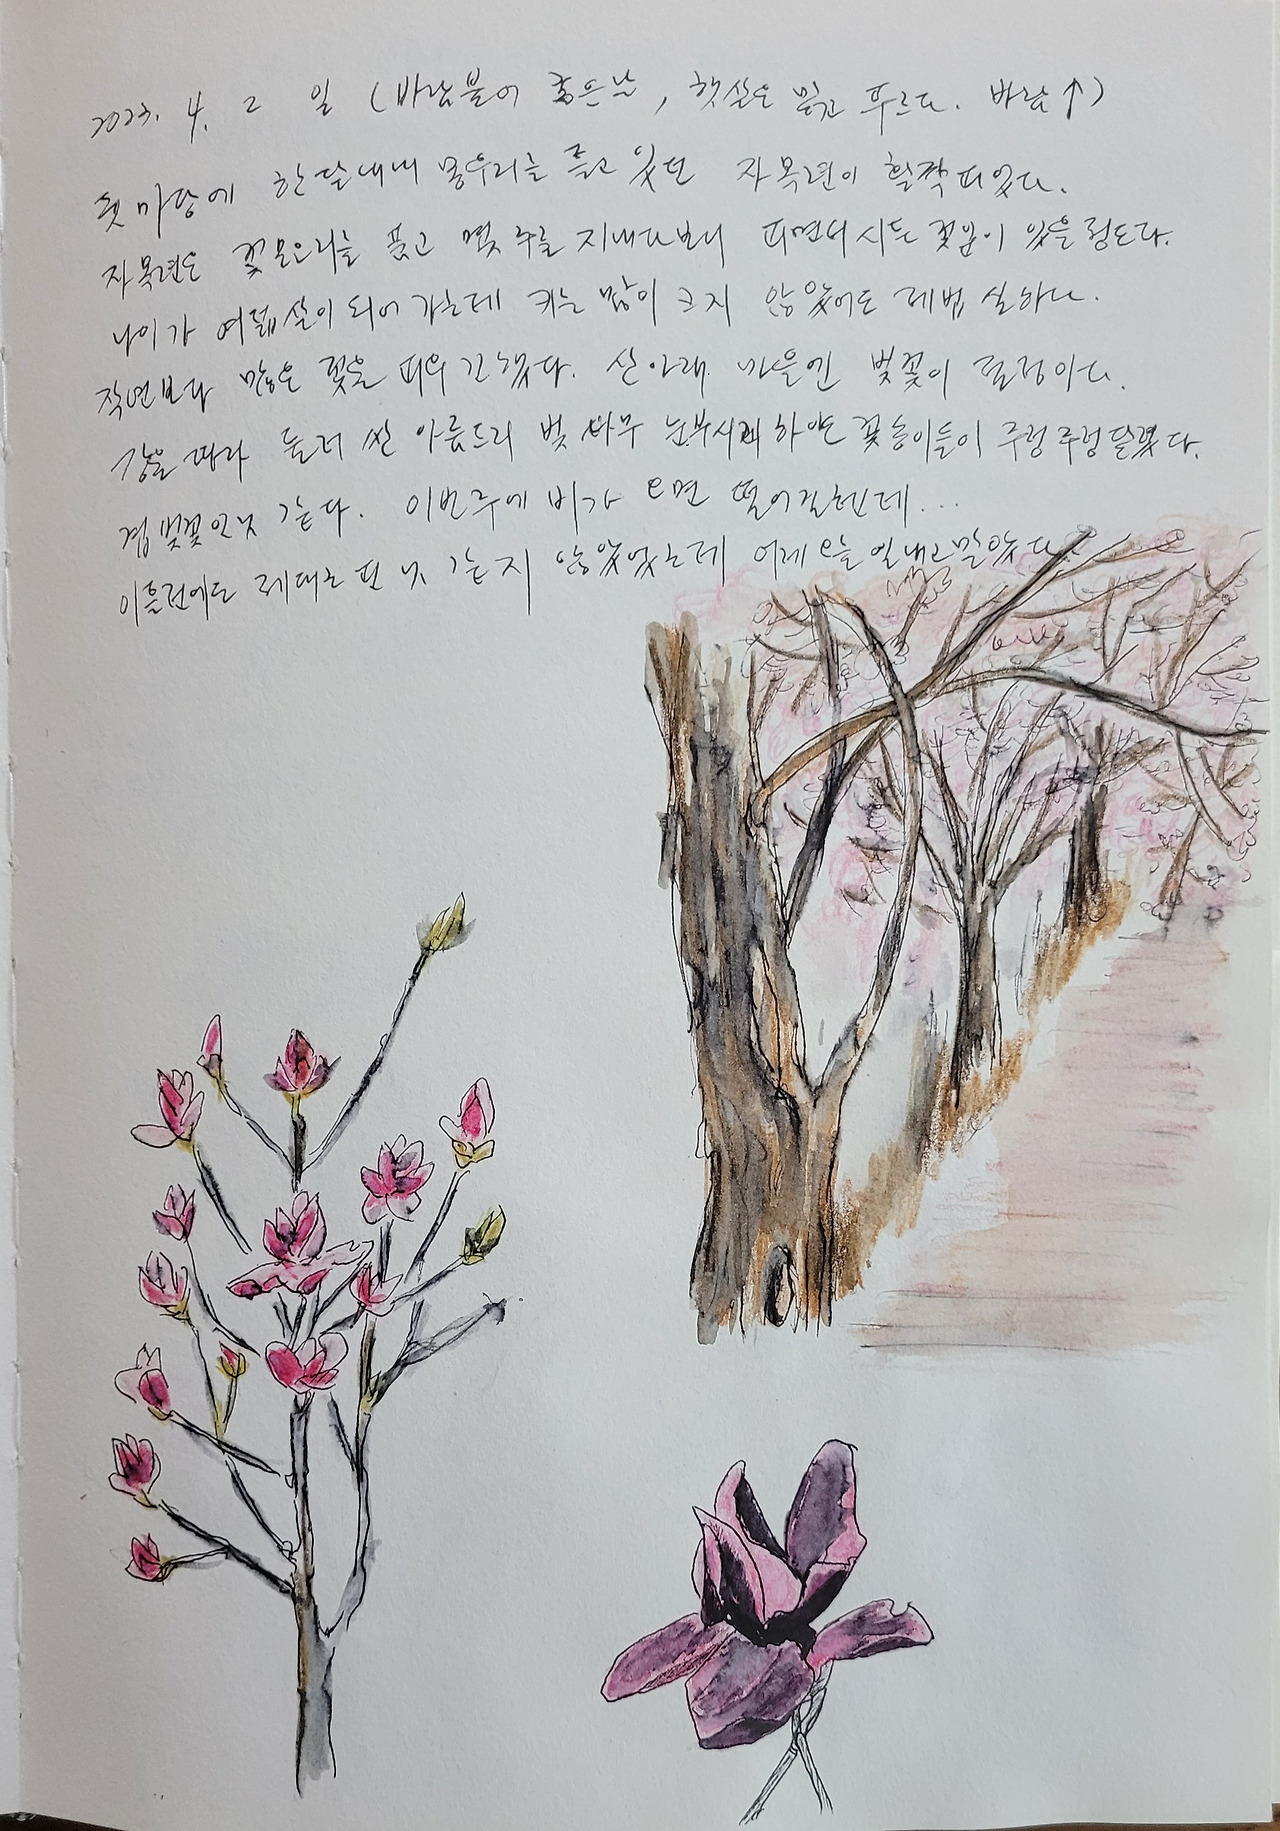 2023. 4. 2 일 (바람불어 좋은날, 햇살은 맑고 푸르다. 바람↑)
뒷마당에 한달내내 몽우리를 품고 있던 자목련이 활짝 피었다.
자목련은 꽃몽우리를 품고 몇 주를 지내다보니 피면서 시든 꽃잎이 있을 정도다.
나이가 여덟살이 되어 가는데 키는 많이 크지 않았어도 제법 실하다.
작년보다 많은 꽃을 피워 간했다. 산아래 마을엔 벚꽃이 절정이다.
강을 따라 둘러 싼 아름드리 벚나무 눈부시게 하얀 꽃송이들이 주렁주렁 달렸다.
겹벚꽃인듯 같다. 이번주에 비가 오면 떨어질텐데...
이틀전에도 제대로 핀 것 같지 않았었는데 어제 오늘 일내고 말았다.